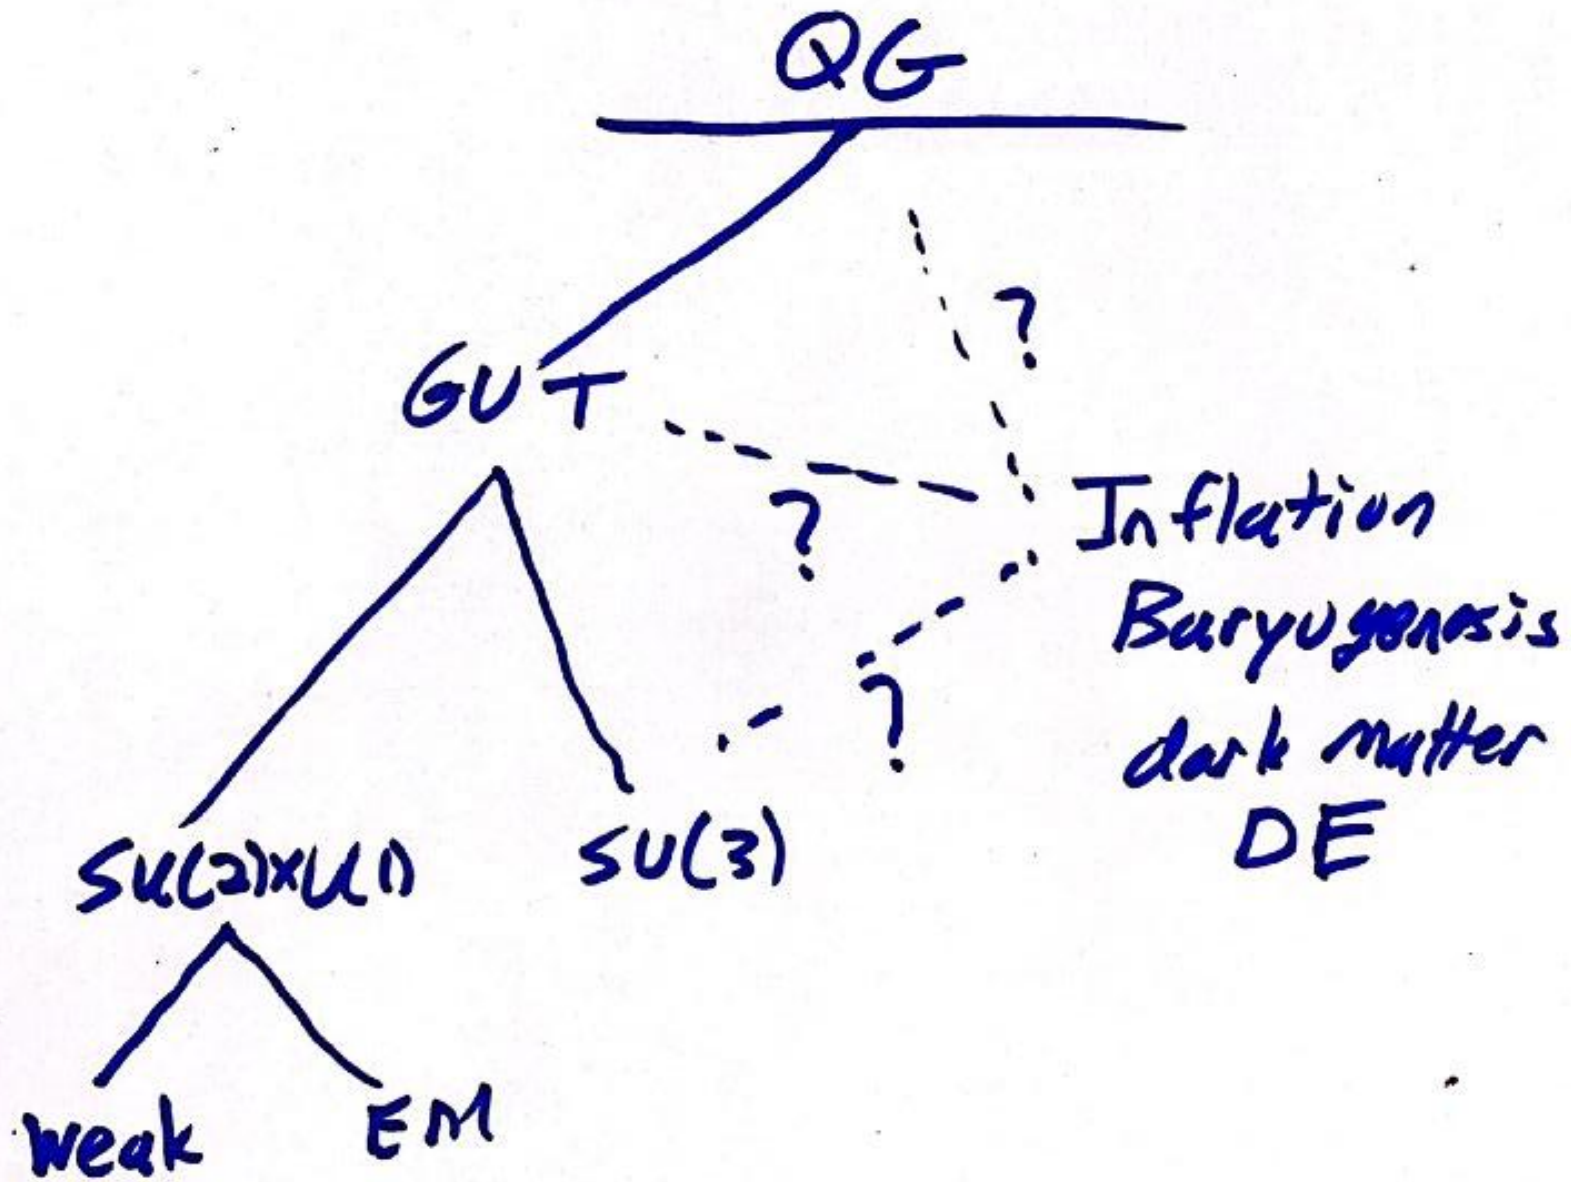 QG
?
GUT
?
Inflation
Baryogenesis
?
dark matter
SU(2)xU(1)
SU(3)
DE
weak
EM